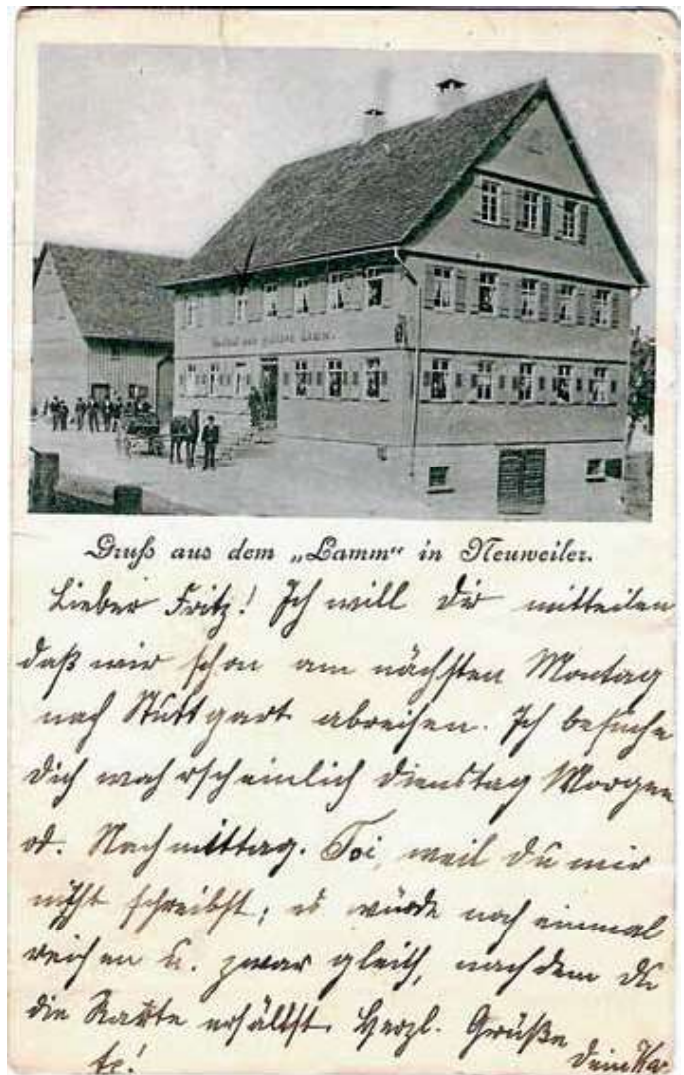 Gasthof zum goldenen Lamm.
Gruß aus dem „Lamm“ in Neuweiler.
Lieber Fritz! Ich will Dir mitteilen
daß wir schon am nächsten Montag
nach Stuttgart abreisen. Ich besuche
Dich wahrscheinlich Dienstag Morgen
od. Nachmittag. weil Du mir
nicht schreibst; es würde noch einmal
reichen u. zwar gleich, nachdem Du
die Karte erhällst. Herzl. Grüße
Dein